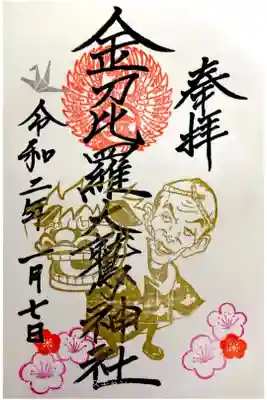 奉拝
金刀比羅大鷲神社
令和二年 一月七日